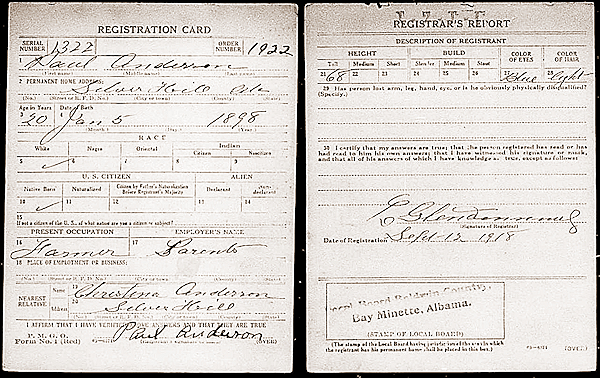 REGISTRATION CARD
SERIAL NUMBER 1322 ORDER NUMBER 1922
1 Paul Anderson
(First name) (Middle name) (Last name)
2 PERMANENT HOME ADDRESS:
Silver Hill Ala
(No.) (Street or R. F. D. No.) (City or town) (County) (State)
Age in Years Date of Birth
3 20 4 Jan 5 1898
(Month) (Day) (Year)
RACE
White Negro Oriental Indian
Citizen Noncitizen
5 ✓ 6 7 8 9
U. S. CITIZEN ALIEN
Native Born Naturalized Citizen by Father's Naturalization Before Registrant's Majority Declarant Non-declarant
10 ✓ 11 12 13 14
15
If not a citizen of the U. S., of what nation are you a citizen or subject?
PRESENT OCCUPATION EMPLOYER'S NAME
16 Farmer 17 Parents
18 PLACE OF EMPLOYMENT OR BUSINESS:
(No.) (Street or R. F. D. No.) (City or town) (County) (State)
NEAREST RELATIVE Name 19 Christina Anderson
Address 20 Silver Hill
(No.) (Street or R. F. D. No.) (City or town) (State)
I AFFIRM THAT I HAVE VERIFIED ANSWERS AND THAT THEY ARE TRUE
P. M. G. O.
Form No. 1 (Red) Paul Anderson (OVER)
REGISTRAR'S REPORT
DESCRIPTION OF REGISTRANT
HEIGHT BUILD COLOR OF EYES COLOR OF HAIR
Tall Medium Short Slender Medium Stout
21 68 22 23 24 25 26 Blue light
29 Has person lost arm, leg, hand, eye, or is he obviously physically disqualified?
(Specify.)
30 I certify that my answers are true; that the person registered has read or has
had read to him his own answers; that I have witnessed his signature or mark,
and that all of his answers of which I have knowledge are true, except as follows:
(Signature of Registrar)
Date of Registration Sept - 12 1918
Local Board Baldwin County,
Bay Minette, Alabama.
(STAMP OF LOCAL BOARD)
(The stamp of the Local Board having jurisdiction of the area in which
the registrant has his permanent home shall be placed in this box.)
(OVER)